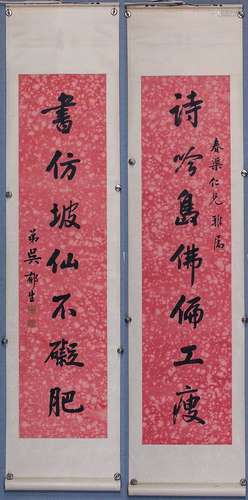 春渠仁兄雅属
詩吟島佛偏工瘦
書仿坡仙不礙肥
弟吳郁生